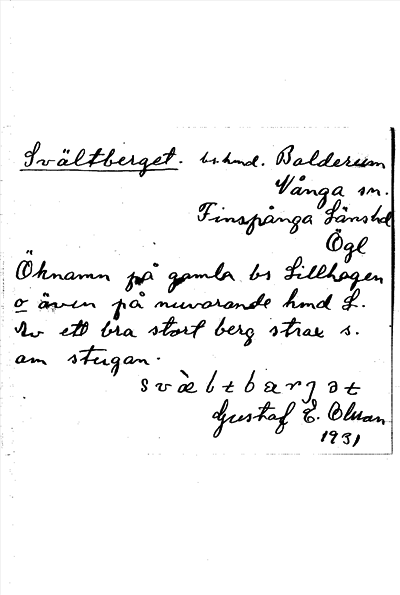 Svältberget. bs. hmd. Balderum
Vånga sn.
Finspånga Länshd
Ögl
Öknamn på gamla bs Lillhagen
o även på nuvarande hmd L.
Av ett bra stort berg strax s.
om stugan.
svæ̀ltbærjət
Gustaf E. Olsson
1931